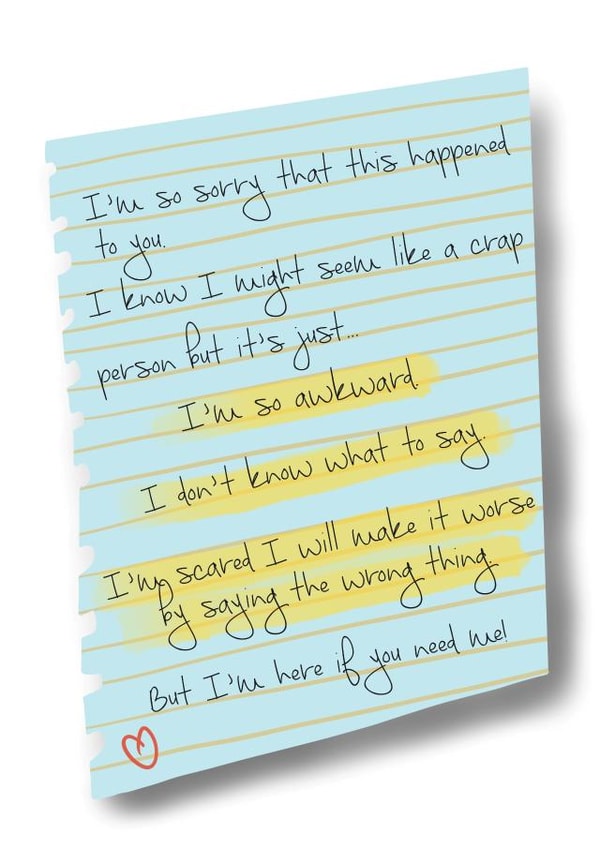 I'm so sorry that this happened
to you.
I know I might seem like a crap
person but it's just...
I'm so awkward.
I don't know what to say.
I'm scared I will make it worse
by saying the wrong thing.
But I'm here if you need me!